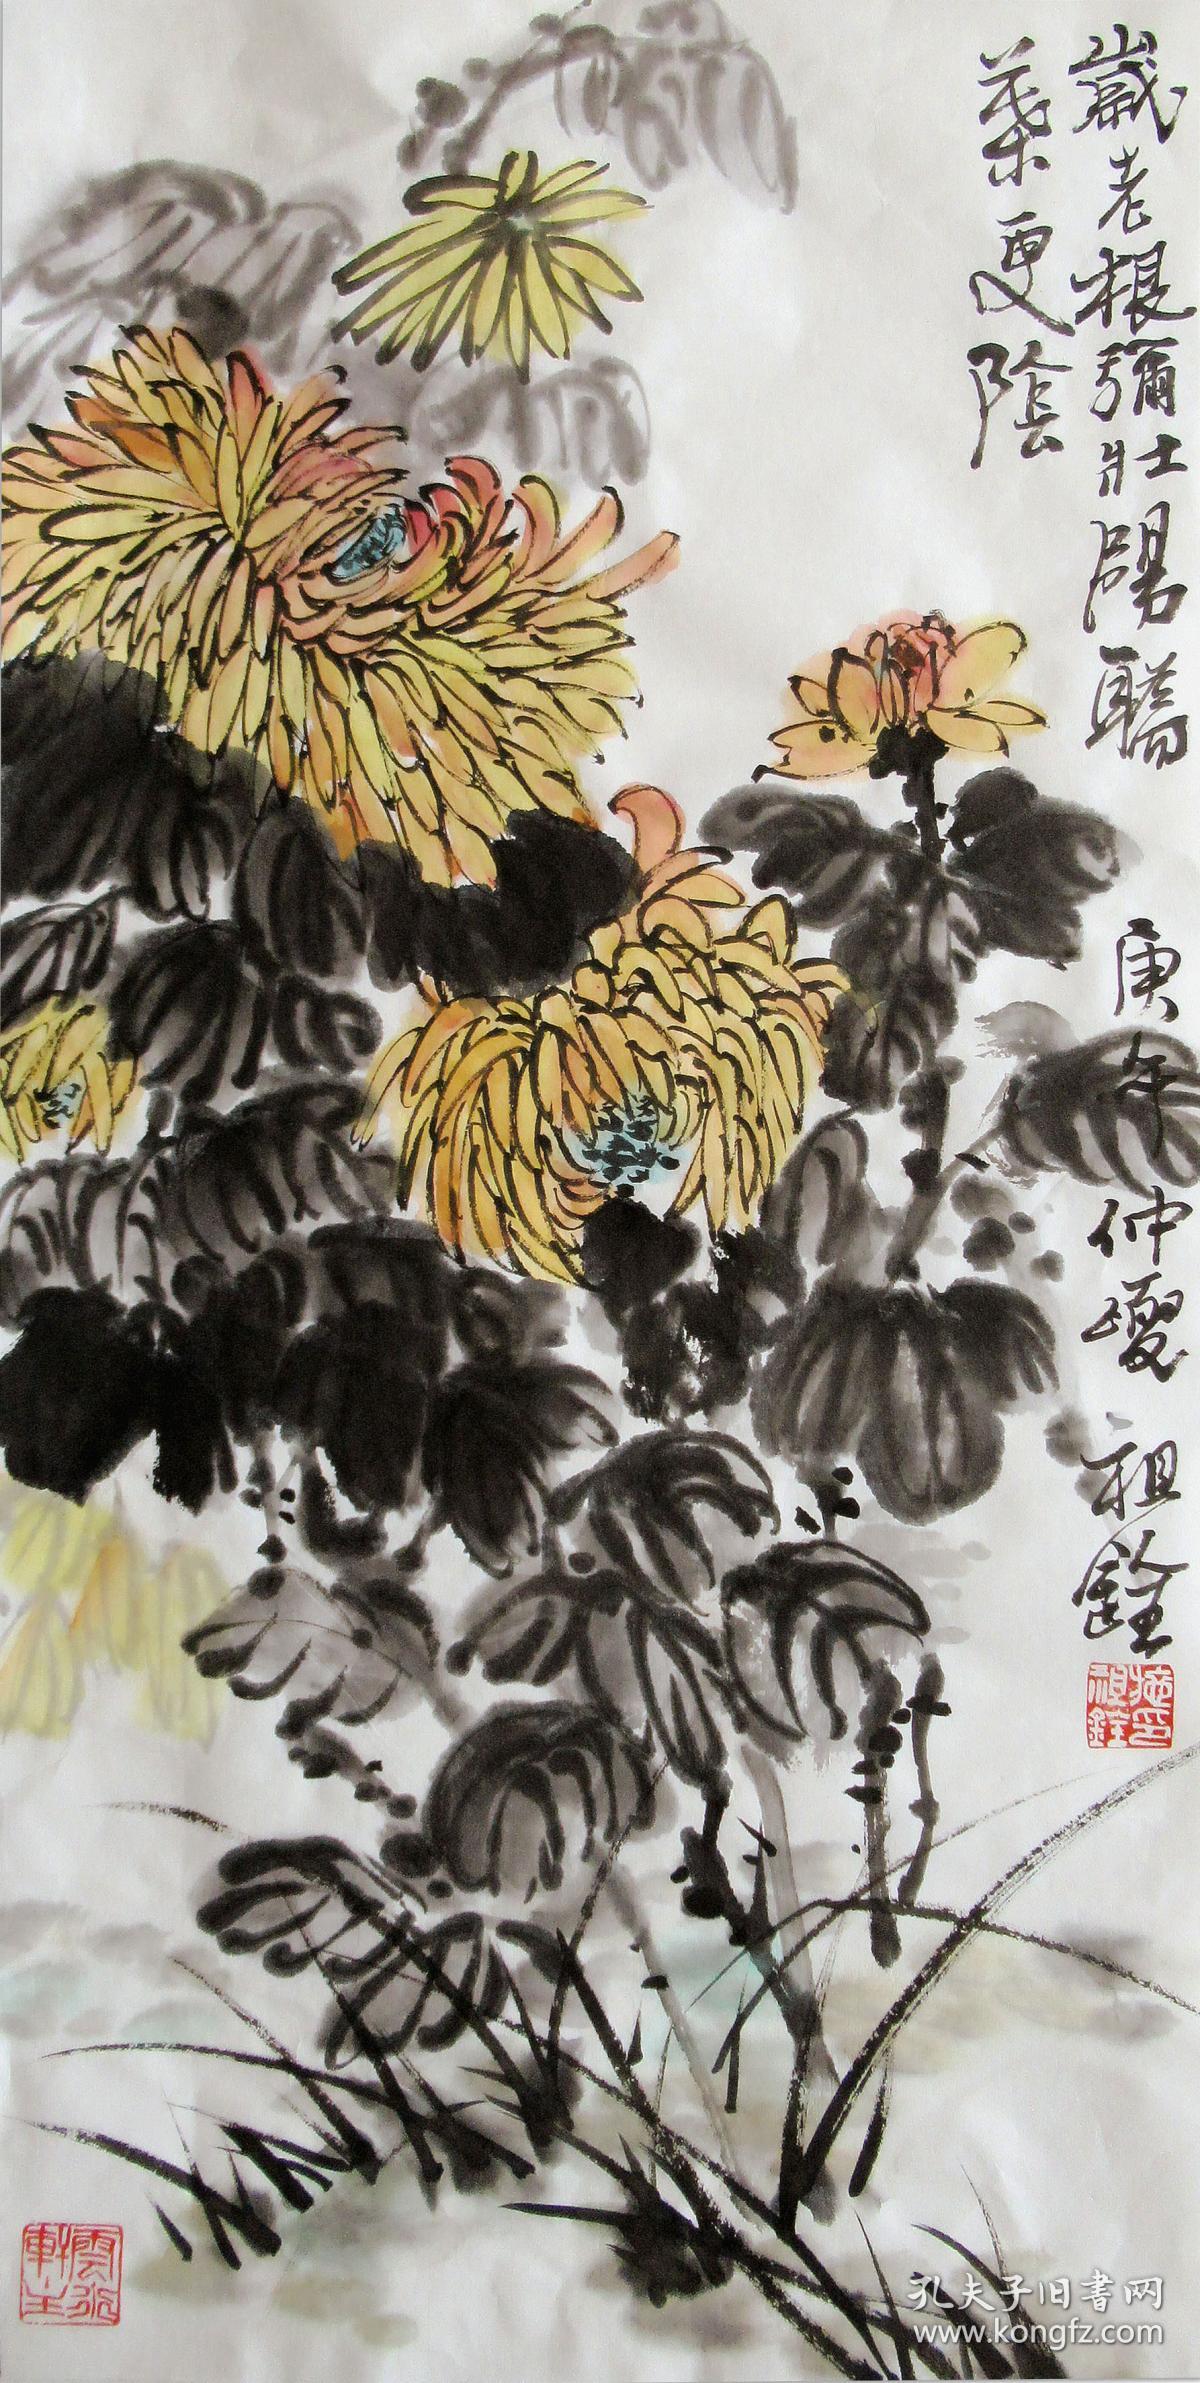 歲老根彌壯陽驕
葉更陰
庚午仲夏 祖銓
施印祖銓
雲水軒主
孔夫子旧书网
www.kongfz.com